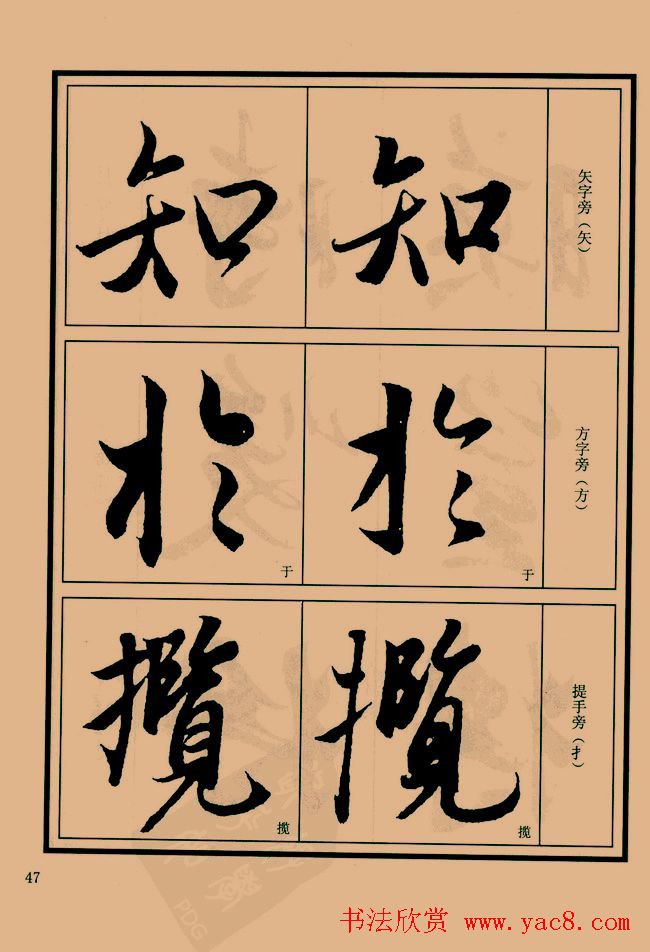 矢字旁（矢）
知
知
方字旁（方）
於
于
於
于
提手旁（扌）
攬
揽
攬
揽
47
书法欣赏 www.yac8.com
PDG